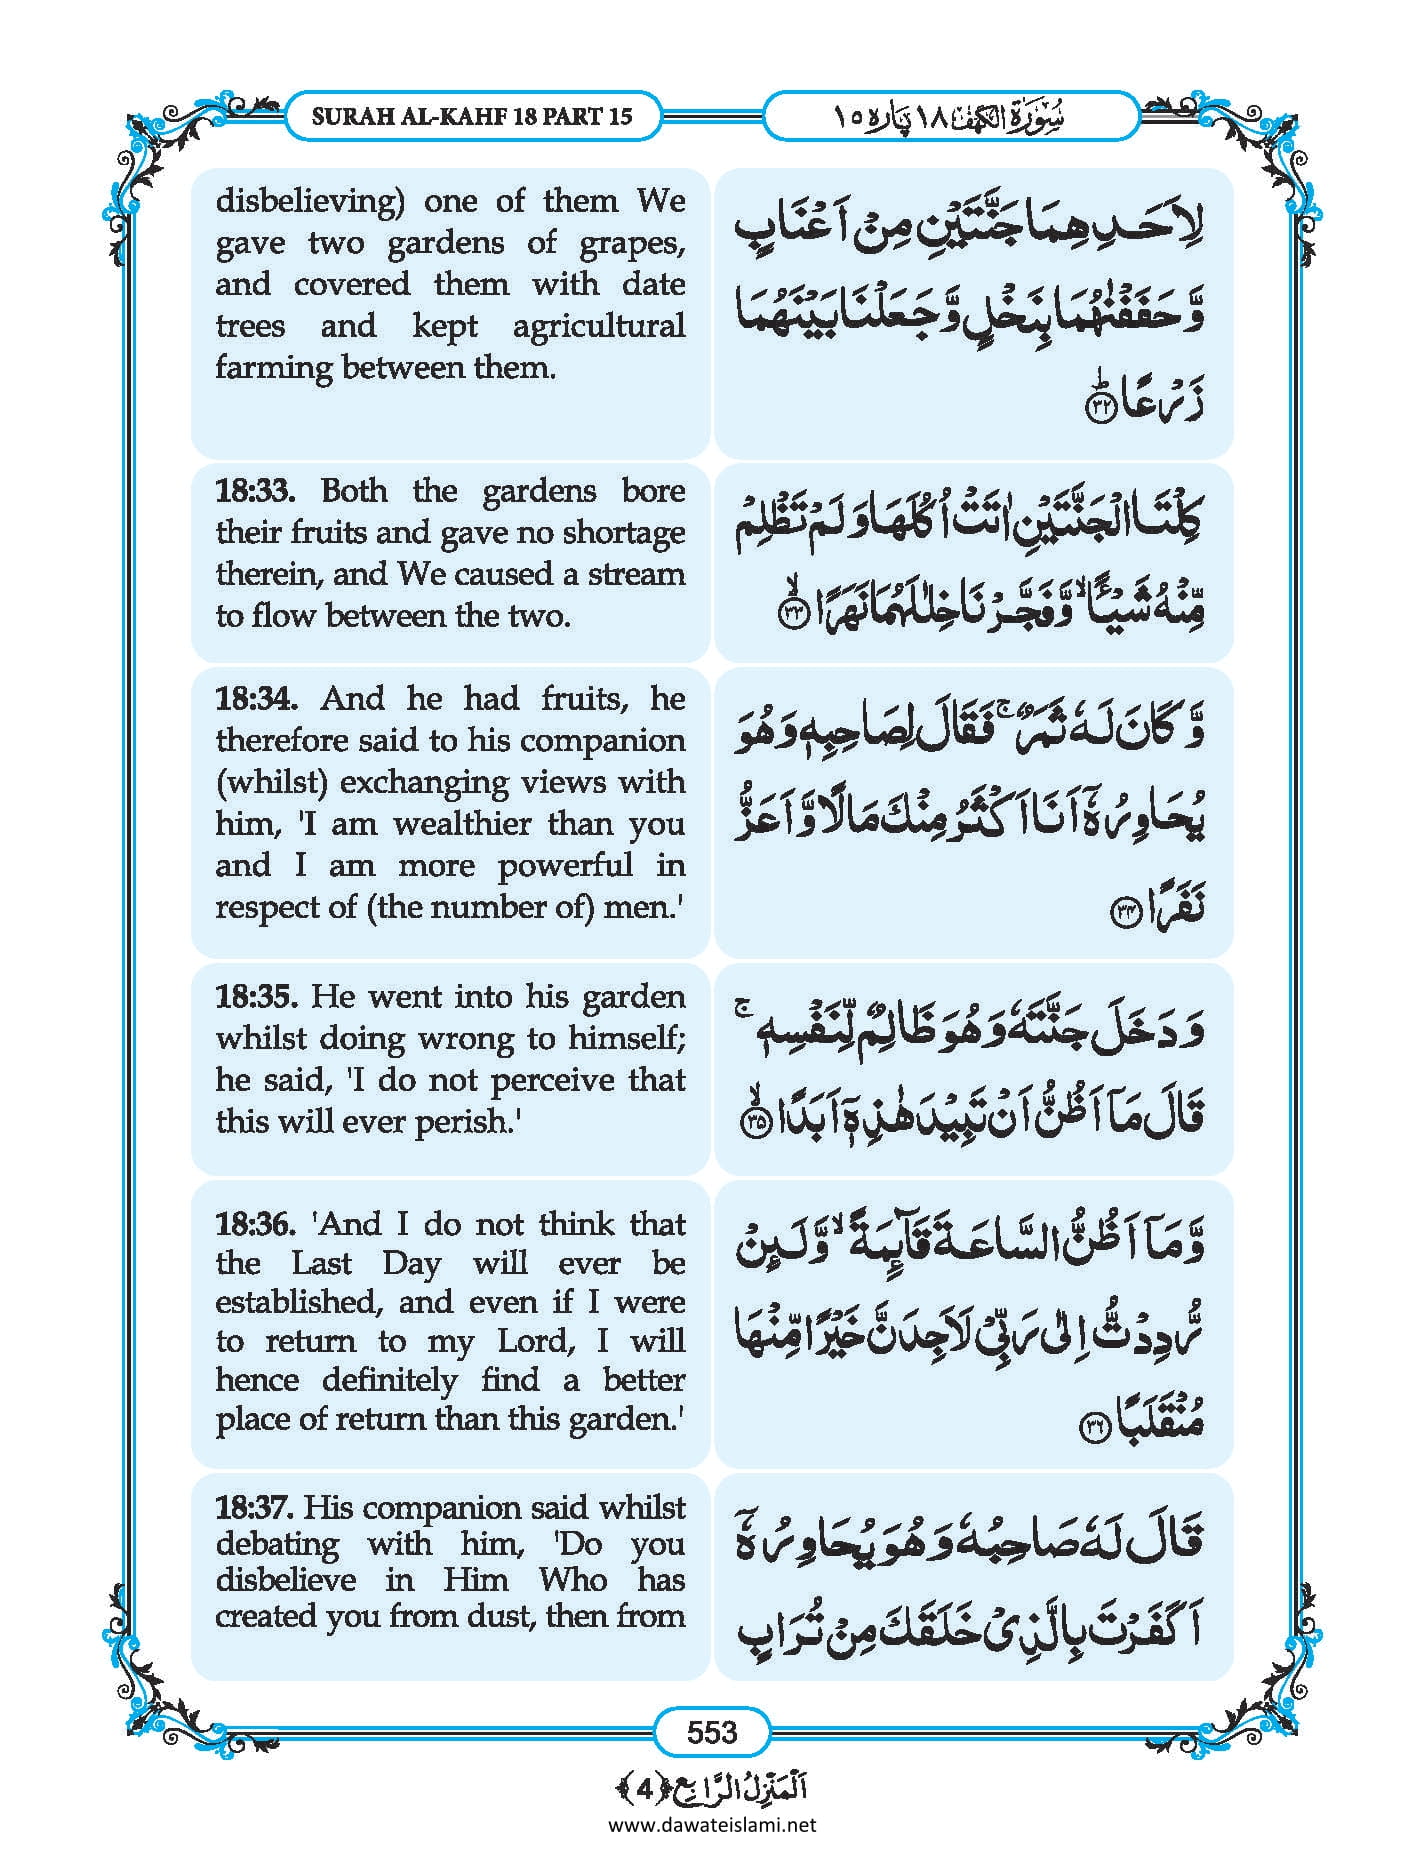 SURAH AL-KAHF 18 PART 15
سُوۡرَۃُ الۡکَہۡف ١٨ پَارہ ١٥
disbelieving) one of them We
gave two gardens of grapes,
and covered them with date
trees and kept agricultural
farming between them.
لِاَحَدِهِمَا جَنَّتَيْنِ مِنْ اَعْنَابٍ
وَّ حَفَفْنٰهُمَا بِنَخْلٍ وَّ جَعَلْنَا بَيْنَهُمَا
زَرْعًا ؕ ﴿۳۲﴾
18:33. Both the gardens bore
their fruits and gave no shortage
therein, and We caused a stream
to flow between the two.
كِلْتَا الْجَنَّتَيْنِ اٰتَتْ اُكُلَهَا وَ لَمْ تَظْلِمْ
مِّنْهُ شَيْـًٔا ۙ وَّ فَجَّرْنَا خِلٰلَهُمَا نَهَرًا ۙ ﴿۳۳﴾
18:34. And he had fruits, he
therefore said to his companion
(whilst) exchanging views with
him, 'I am wealthier than you
and I am more powerful in
respect of (the number of) men.'
وَّ كَانَ لَهٗ ثَمَرٌ ۚ فَقَالَ لِصَاحِبِهٖ وَ هُوَ
يُحَاوِرُهٗۤ اَنَا اَكْثَرُ مِنْكَ مَالًا وَّ اَعَزُّ
نَفَرًا ﴿۳۴﴾
18:35. He went into his garden
whilst doing wrong to himself;
he said, 'I do not perceive that
this will ever perish.'
وَ دَخَلَ جَنَّتَهٗ وَ هُوَ ظَالِمٌ لِّنَفْسِهٖ ۚ
قَالَ مَاۤ اَظُنُّ اَنْ تَبِيْدَ هٰذِهٖۤ اَبَدًا ۙ ﴿۳۵﴾
18:36. 'And I do not think that
the Last Day will ever be
established, and even if I were
to return to my Lord, I will
hence definitely find a better
place of return than this garden.'
وَّ مَاۤ اَظُنُّ السَّاعَةَ قَآئِمَةً ۙ وَّ لَىِٕنْ
رُّدِدْتُّ اِلٰى رَبِّيْ لَاَجِدَنَّ خَيْرًا مِّنْهَا
مُنْقَلَبًا ﴿۳۶﴾
18:37. His companion said whilst
debating with him, 'Do you
disbelieve in Him Who has
created you from dust, then from
قَالَ لَهٗ صَاحِبُهٗ وَ هُوَ يُحَاوِرُهٗۤ
اَكَفَرْتَ بِالَّذِيْ خَلَقَكَ مِنْ تُرَابٍ
553
اَلْمَنْزِلُ الرَّابِع ﴿4﴾
www.dawateislami.net